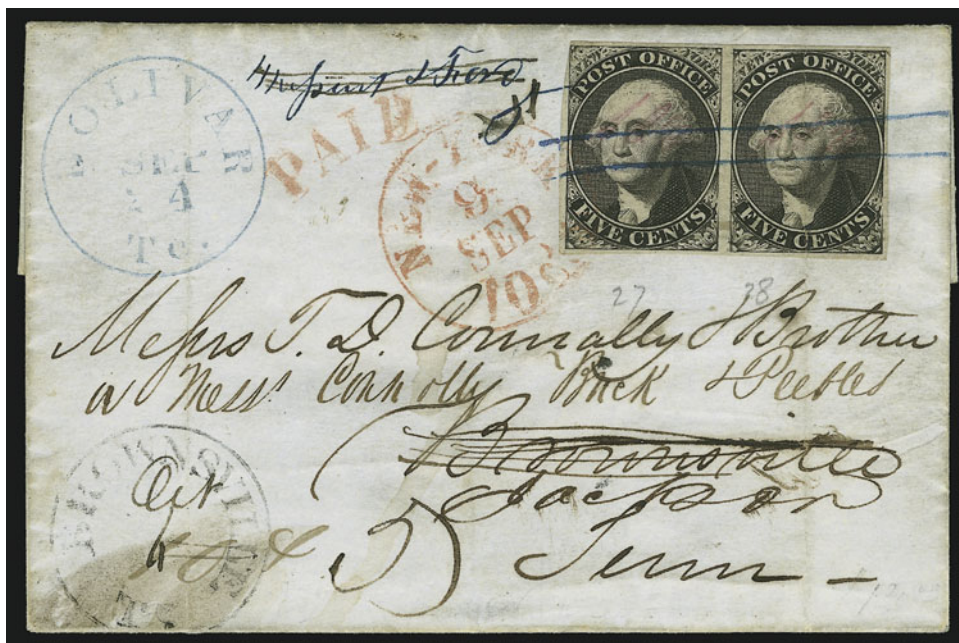 BOLIVAR
SEP
4
Te.
& Ford
PAID
NEW-YORK
9
SEP
10cts
POST OFFICE
FIVE CENTS
POST OFFICE
FIVE CENTS
27 28
Messrs T. D. Connally & Brother
or Messrs Connolly Buck & Peebles
Brownsville
Jackson
Tenn
BROWNSVILLE
Oct
4
5